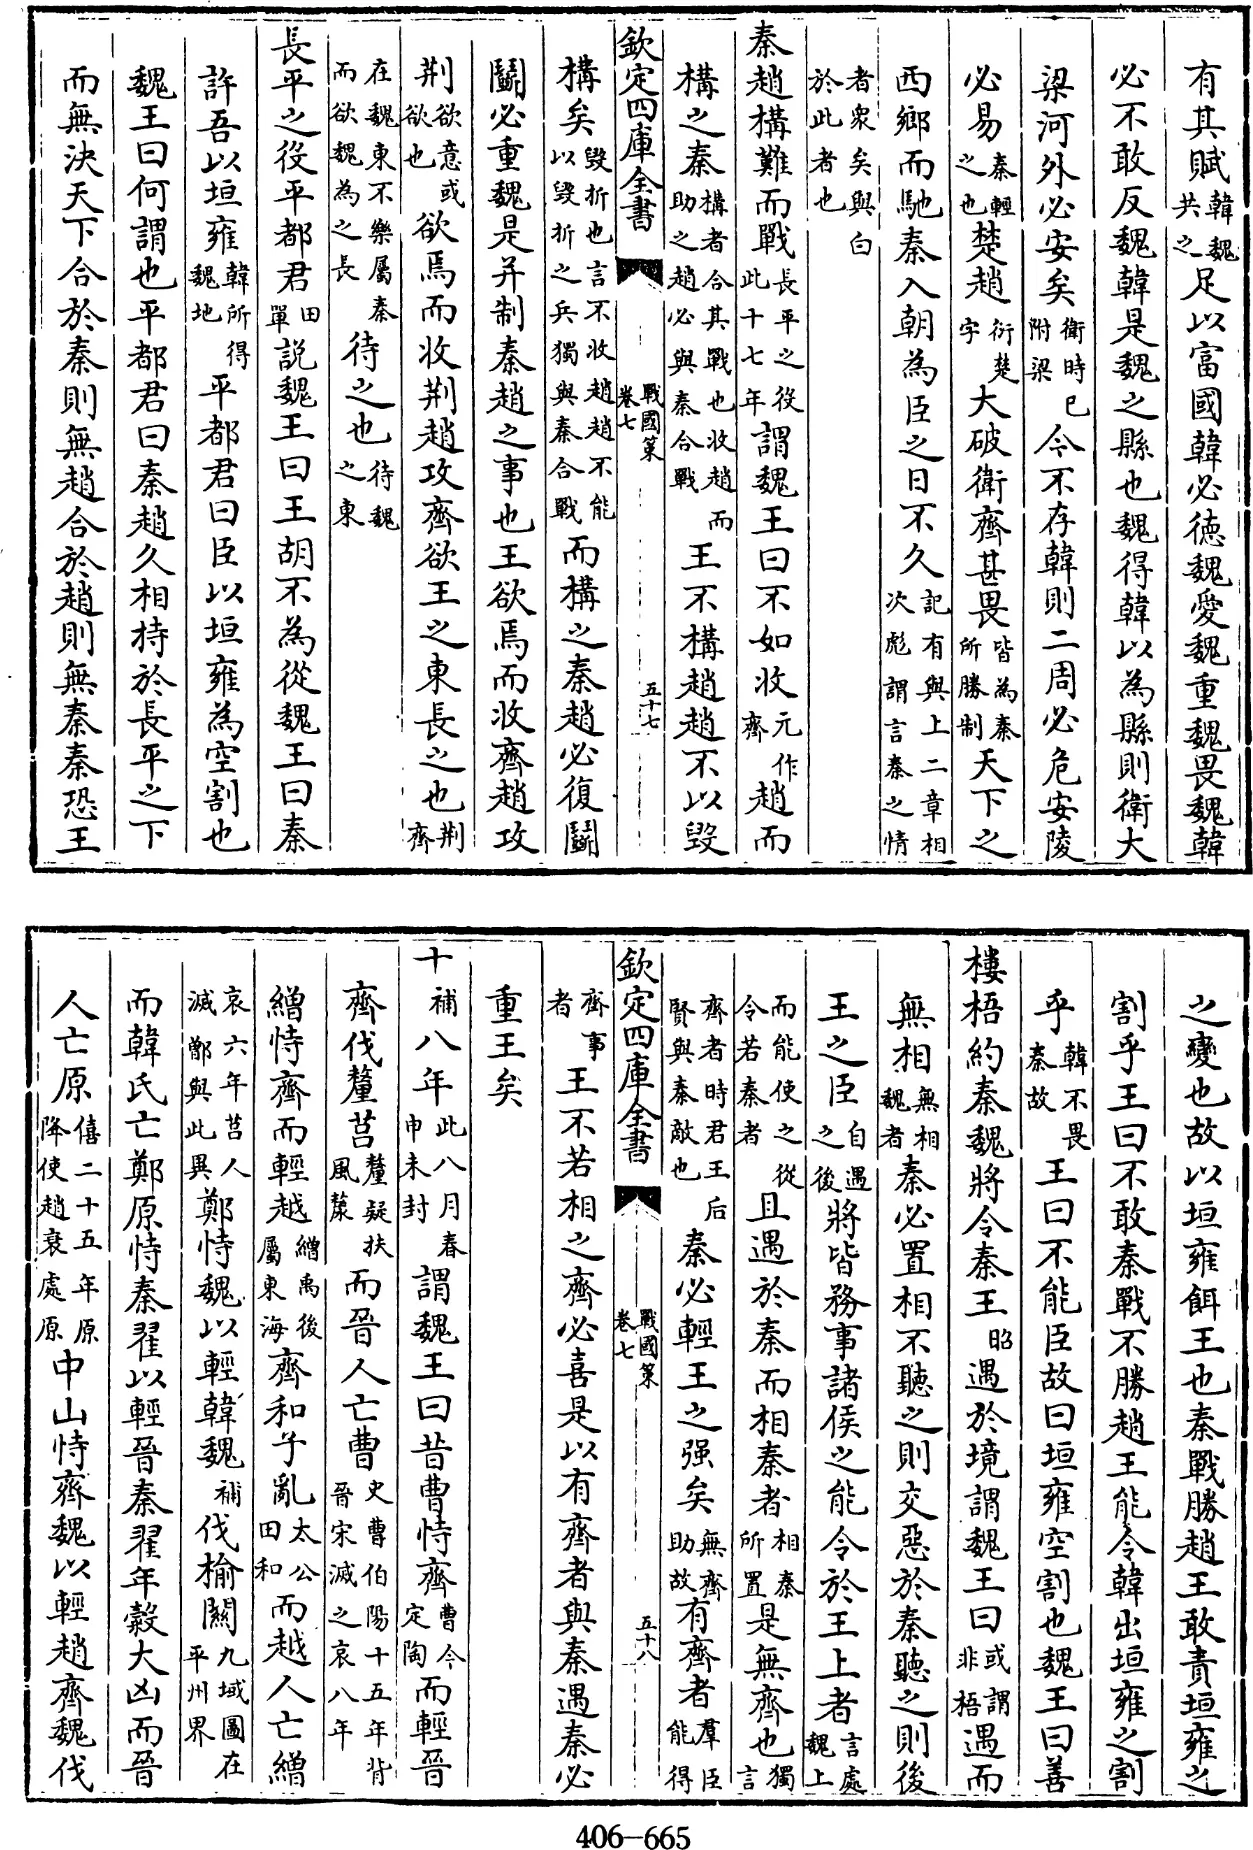 有其賦韓魏共之足以富國韓必徳魏愛魏重魏畏魏韓
必不敢反魏韓是魏之縣也魏得韓以為縣則衛大
梁河外必安矣衛時已附梁今不存韓則二周必危安陵
必易秦輕之也楚趙衍楚字大破衛齊甚畏皆為秦所勝制天下之
西鄉而馳秦入朝為臣之日不久記有與上二章相次彪謂言秦之情
者衆矣與白於此者也
秦趙構難而戰長平之役此十七年謂魏王曰不如收元作齊趙而
構之秦構者合其戰也收趙而助之趙必與秦合戰王不構趙趙不以毀
欽定四庫全書
戰國策卷七
五十七
構矣毀折也言不收趙趙不能以毀折之兵獨與秦合戰而構之秦趙必復鬭
鬭必重魏是并制秦趙之事也王欲焉而收齊趙攻
荆欲意或欲也欲焉而收荆趙攻齊欲王之東長之也荆齊
在魏東不樂屬秦而欲魏為之長待之也待魏之東
長平之役平都君田單説魏王曰王胡不為從魏王曰秦
許吾以垣雍韓所得魏地平都君曰臣以垣雍為空割也
魏王曰何謂也平都君曰秦趙久相持於長平之下
而無決天下合於秦則無趙合於趙則無秦秦恐王
之變也故以垣雍餌王也秦戰勝趙王敢責垣雍之
割乎王曰不敢秦戰不勝趙王能令韓出垣雍之割
乎韓不畏秦故王曰不能臣故曰垣雍空割也魏王曰善
樓梧約秦魏將令秦王昭遇於境謂魏王曰或謂非梧遇而
無相無相魏者秦必置相不聽之則交惡於秦聽之則後
王之臣自遇之後將皆務事諸侯之能令於王上者言處魏上
而能使之從令若秦者且遇於秦而相秦者相秦所置是無齊也獨言
齊者時君王后賢與秦敵也秦必輕王之强矣無齊助故有齊者羣臣能得
欽定四庫全書
戰國策卷七
五十八
齊事者王不若相之齊必喜是以有齊者與秦遇秦必
重王矣
十補八年此八月春申未封謂魏王曰昔曹恃齊曹今定陶而輕晉
齊伐釐莒釐疑扶風斄而晉人亡曹史曹伯陽十五年背晉宋滅之哀八年
繒恃齊而輕越繒禹後屬東海齊和子亂太公田和而越人亡繒
哀六年莒人滅鄫與此異鄭恃魏以輕韓魏補伐榆關九域圖在平州界
而韓氏亡鄭原恃秦翟以輕晉秦翟年糓大凶而晉
人亡原僖二十五年原降使趙衰處原中山恃齊魏以輕趙齊魏伐
406-665